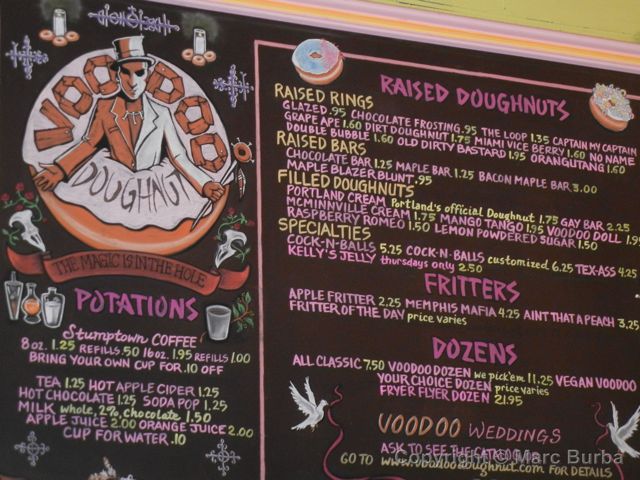 VOODOO
DOUGHNUT
THE MAGIC IS IN THE HOLE
POTATIONS
Stumptown COFFEE
8 oz. 1.25 REFILLS .50 16 oz. 1.95 REFILLS 1.00
BRING YOUR OWN CUP FOR .10 OFF
TEA 1.25 HOT APPLE CIDER 1.25
HOT CHOCOLATE 1.25 SODA POP 1.25
MILK whole, 2%, chocolate 1.50
APPLE JUICE 2.00 ORANGE JUICE 2.00
CUP FOR WATER .10
RAISED DOUGHNUTS
RAISED RINGS
GLAZED .95 CHOCOLATE FROSTING .95 THE LOOP 1.35 CAPTAIN MY CAPTAIN
GRAPE APE 1.60 DIRT DOUGHNUT 1.75 MIAMI VICE BERRY 1.60 NO NAME
DOUBLE BUBBLE 1.60 OLD DIRTY BASTARD 1.95 ORANGUTANG 1.60
RAISED BARS
CHOCOLATE BAR 1.25 MAPLE BAR 1.25 BACON MAPLE BAR 3.00
MAPLE BLAZER BLUNT .95
FILLED DOUGHNUTS
PORTLAND CREAM Portland's official Doughnut 1.75 GAY BAR 2.25
MCMINNVILLE CREAM 1.75 MANGO TANGO 1.95 VOODOO DOLL
RASPBERRY ROMEO 1.50 LEMON POWDERED SUGAR 1.50
SPECIALTIES
COCK-N-BALLS 5.25 COCK-N-BALLS customized 6.25 TEX-ASS 4.25
KELLY'S JELLY thursdays only 2.50
FRITTERS
APPLE FRITTER 2.25 MEMPHIS MAFIA 4.25 AINT THAT A PEACH 3.25
FRITTER OF THE DAY price varies
DOZENS
ALL CLASSIC 7.50 VOODOO DOZEN we pick'em 11.25 VEGAN VOODOO
YOUR CHOICE DOZEN price varies
FRYER FLYER DOZEN 21.95
VOODOO WEDDINGS
ASK TO SEE THE CATALOG OR
GO TO www.voodoodoughnut.com FOR DETAILS
Copyright © Marc Burba